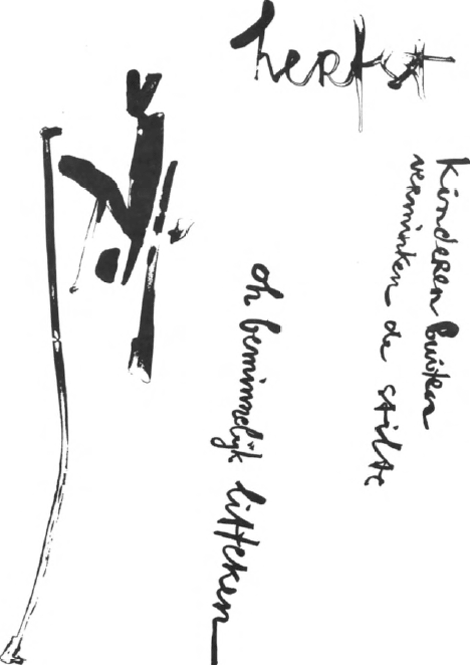 herfst
kinderen buiten
verminken de stilte
oh beminnelijk litteken